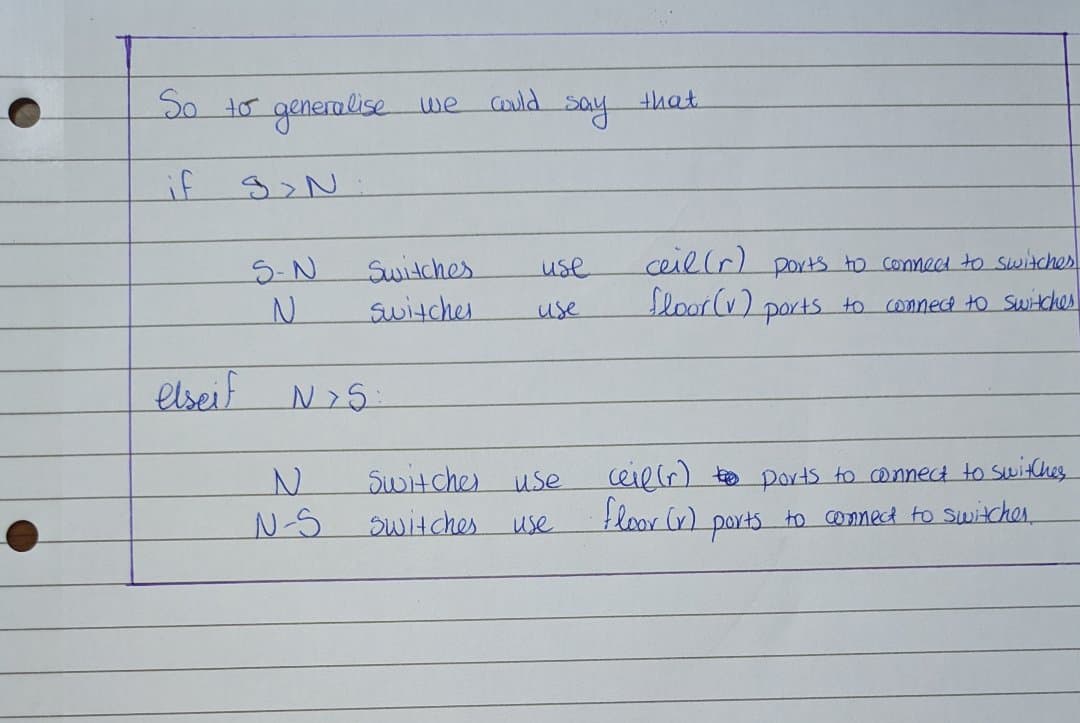 So to generalise we could say that
if S > N :
S-N switches use ceil(r) ports to connect to switches
N switches use floor(r) ports to connect to switches
elseif N > S :
N switches use ceil(r) ports to connect to switches
N-S switches use floor(r) ports to connect to switches.